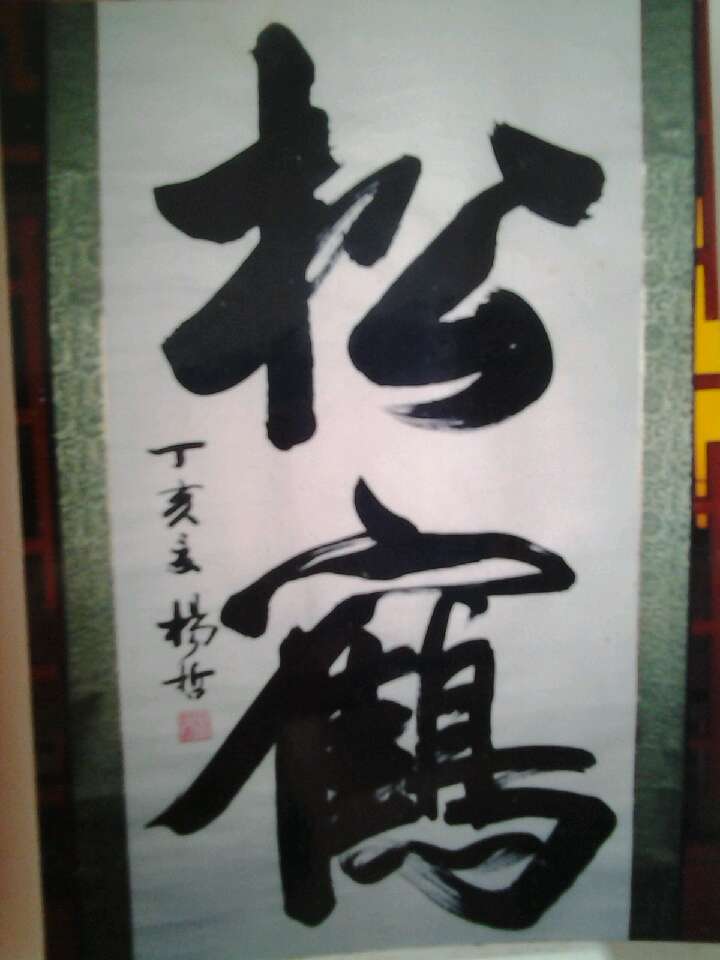 松鶴
丁亥
楊哲